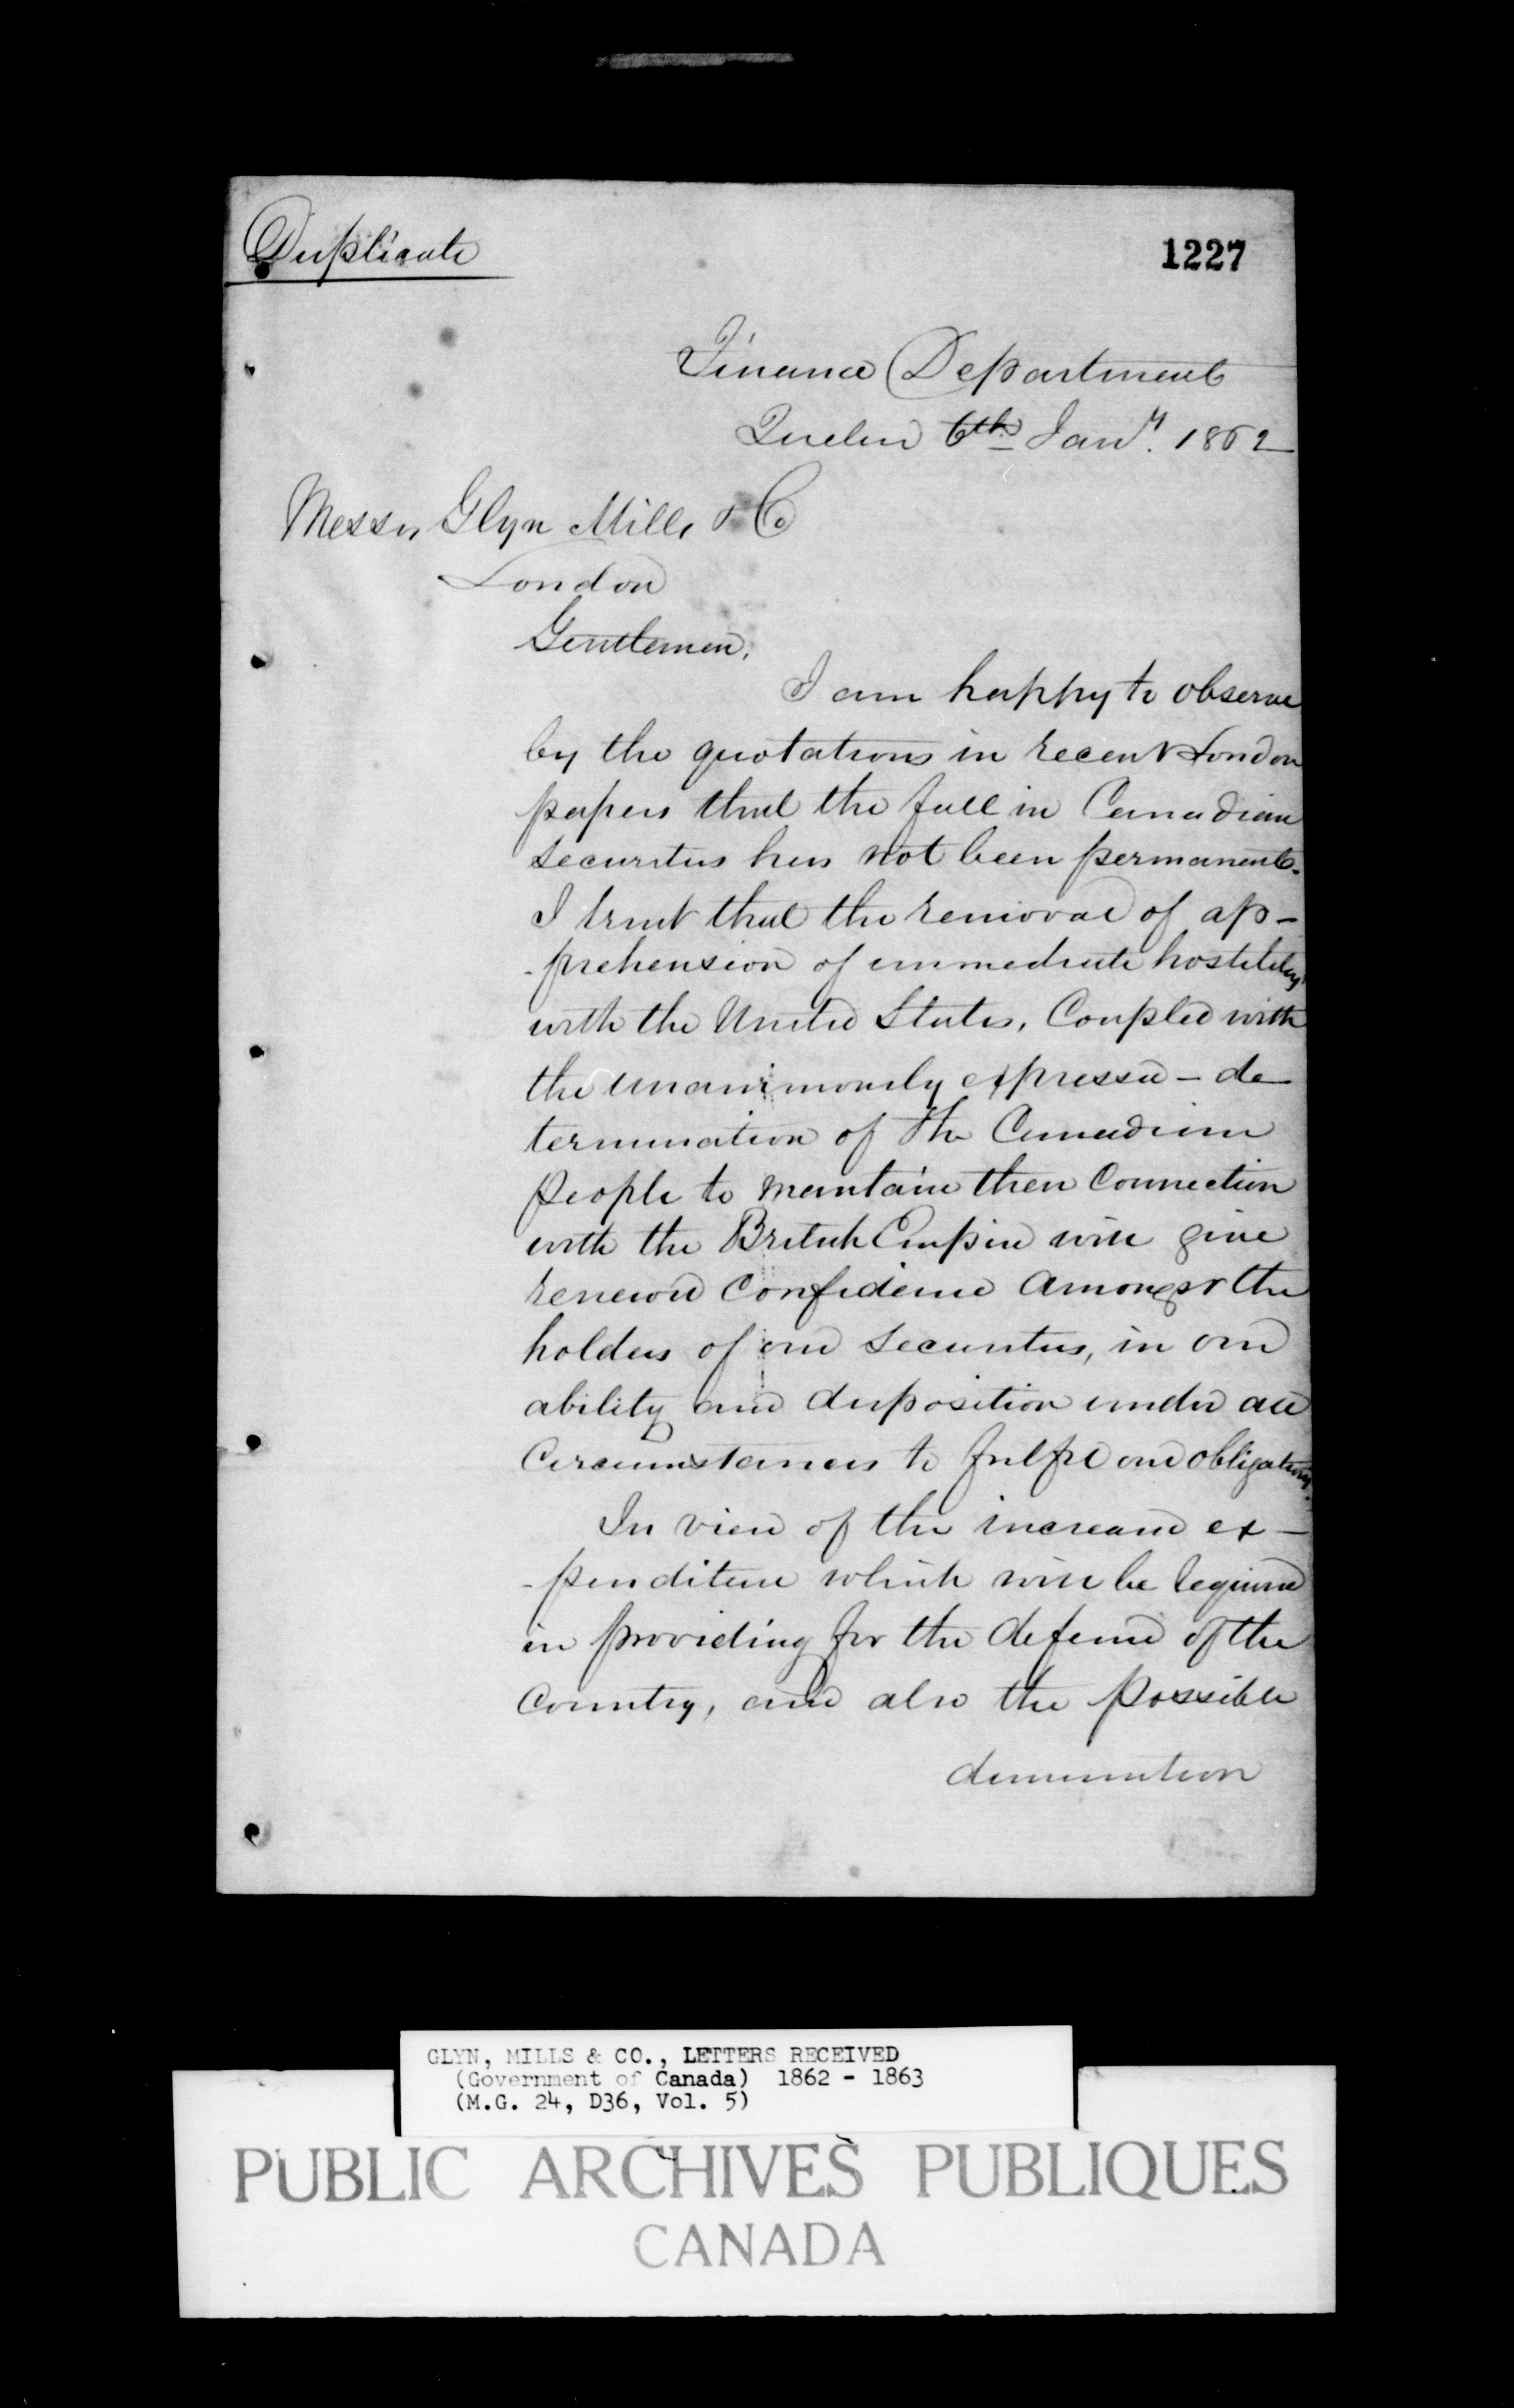 Duplicate
1227
Finance Department
Quebec 6th Jany. 1862
Messrs Glyn Mills & Co
London
Gentlemen,
I am happy to observe
by the quotations in recent London
papers that the fall in Canadian
securities has not been permanent.
I trust that the removal of ap-
-prehension of immediate hostility
with the United States, Coupled with
the unanimously expressed - de
termination of the Canadian
people to maintain their Connection
with the British Empire will give
renewed Confidence amongst the
holders of our securities, in our
ability and disposition under all
Circumstances to fulfil our obligations.
In view of the increased ex-
-penditure which will be required
in providing for the defence of the
Country, and also the possible
diminution
GLYN, MILLS & CO., LETTERS RECEIVED
(Government of Canada) 1862 - 1863
(M.G. 24, D36, Vol. 5)
PUBLIC ARCHIVES PUBLIQUES
CANADA